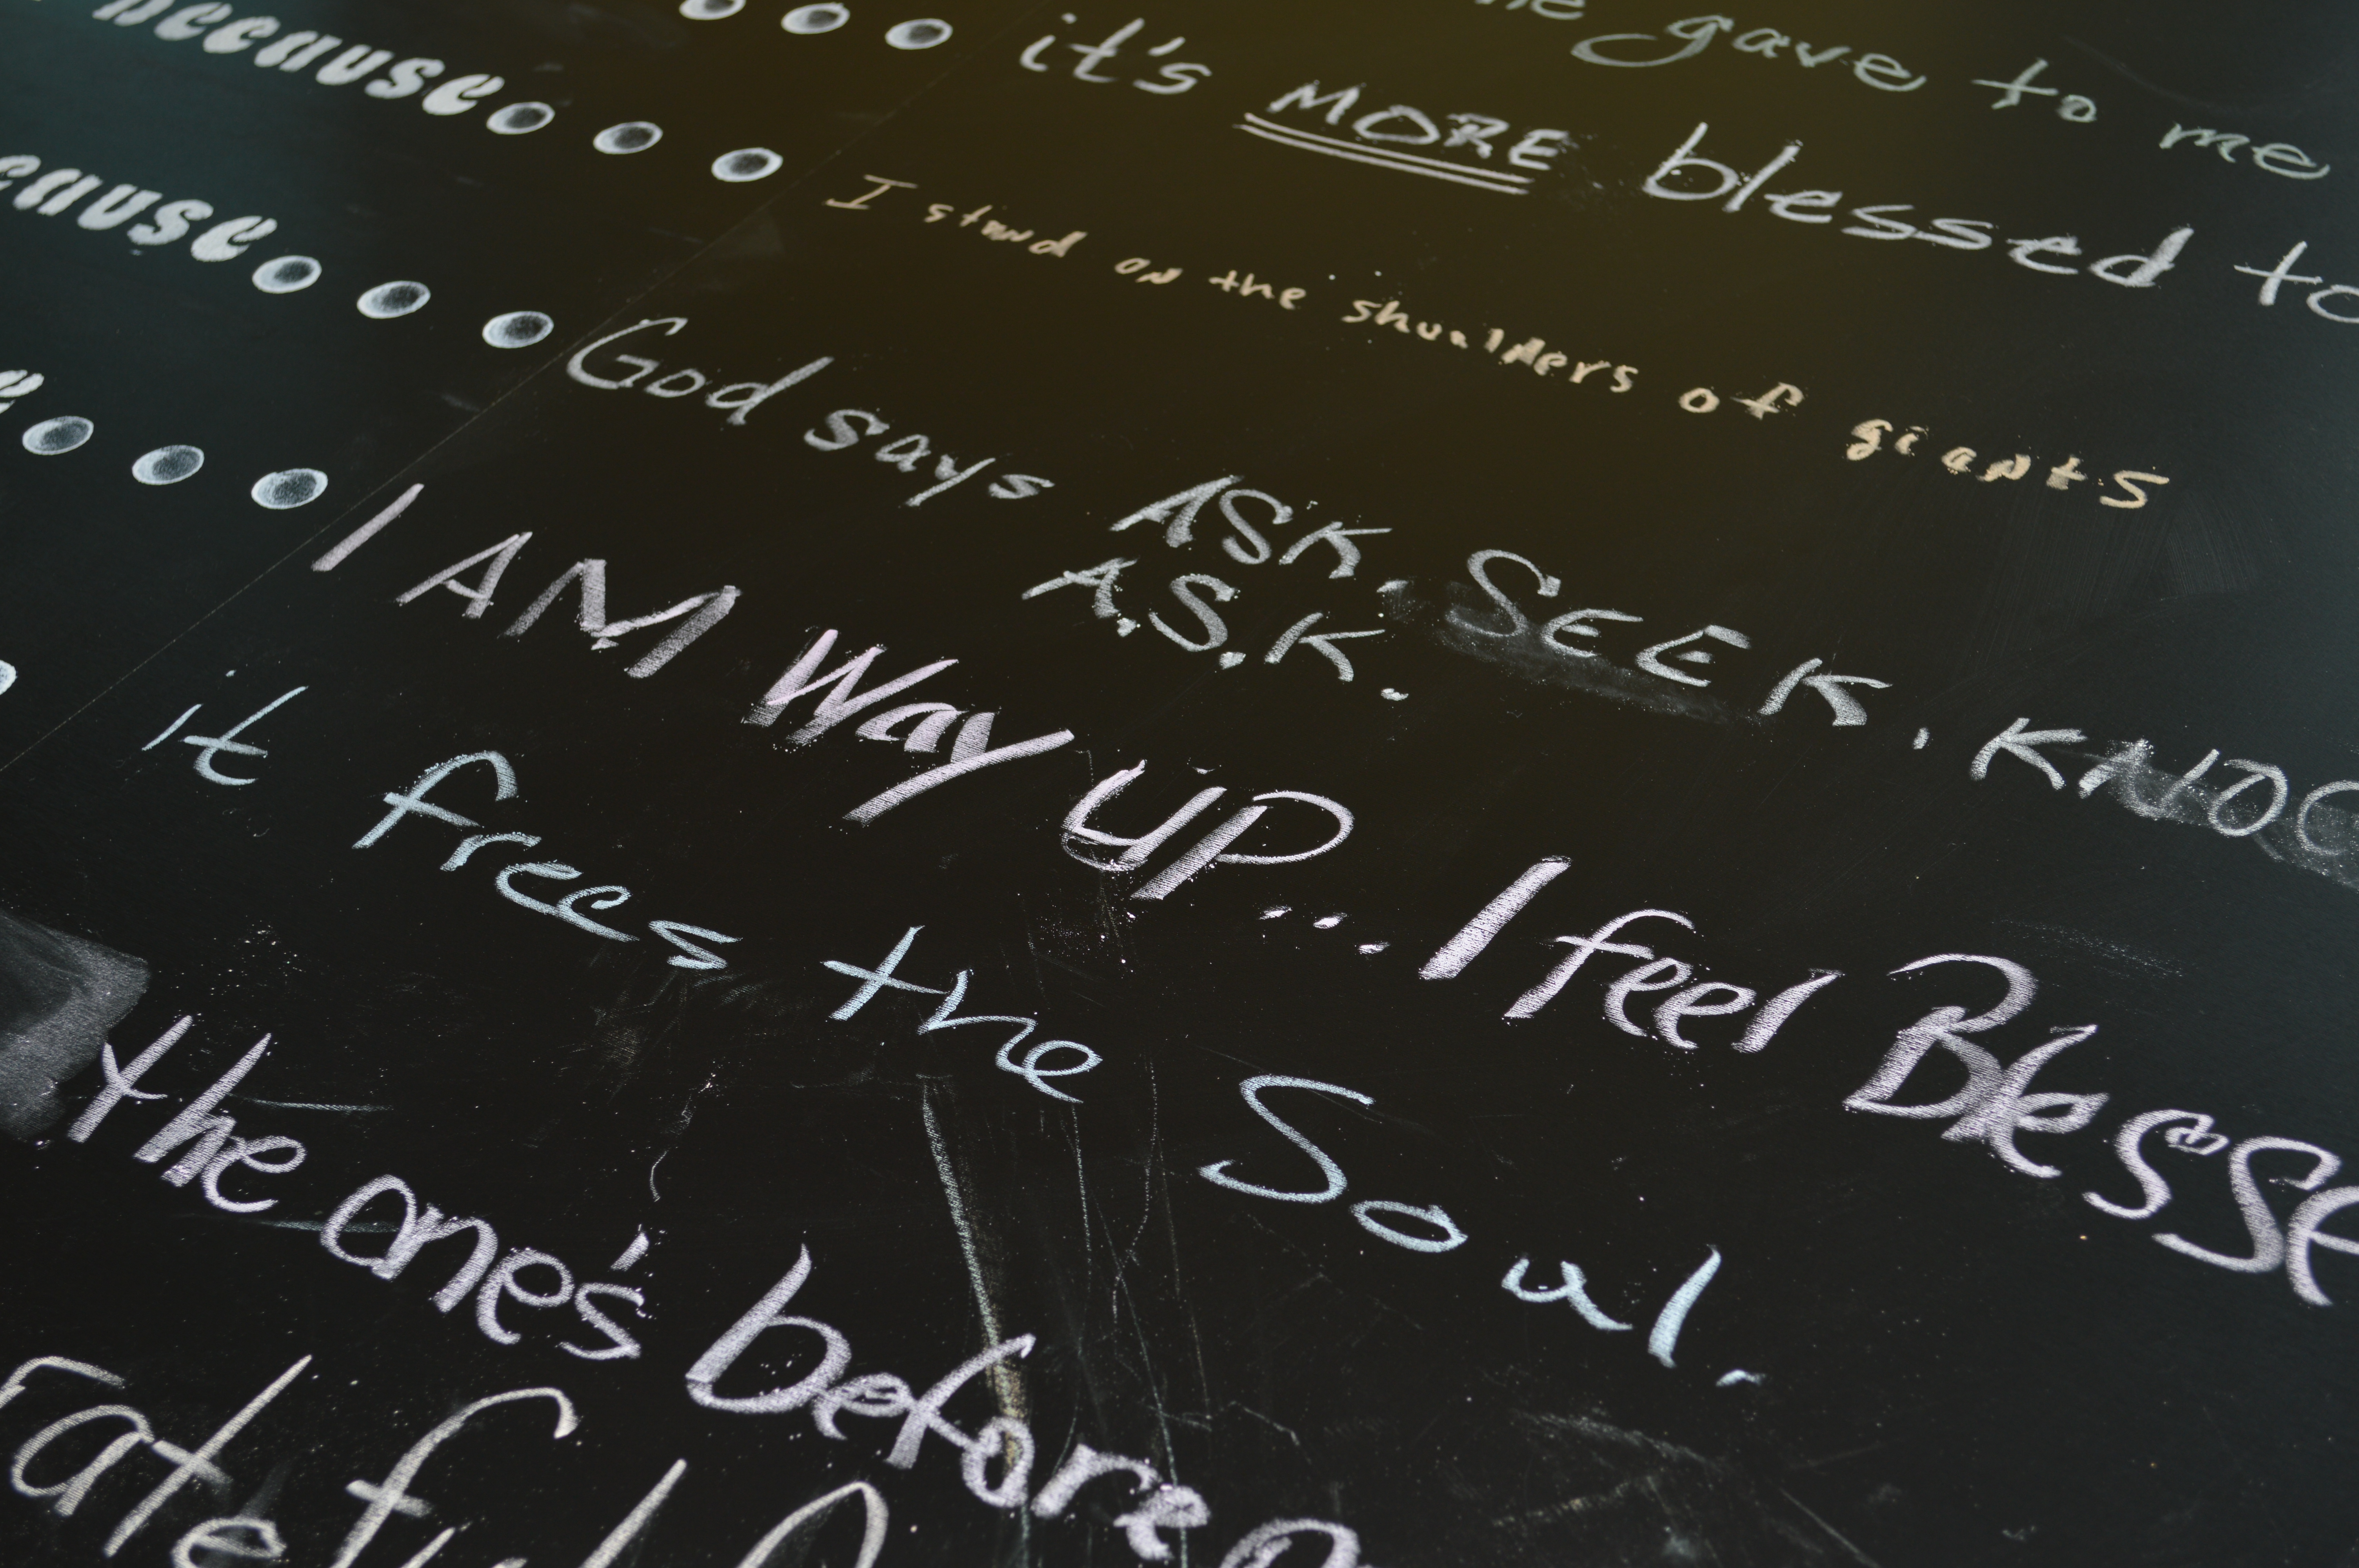 gave to me
because... it's MORE blessed to
cause... I stand on the shoulders of giants
God says ASK, SEEK, KNOC
A.S.K.
I AM Way UP... I feel Blesse
it frees the Soul.
the one's before
rateful